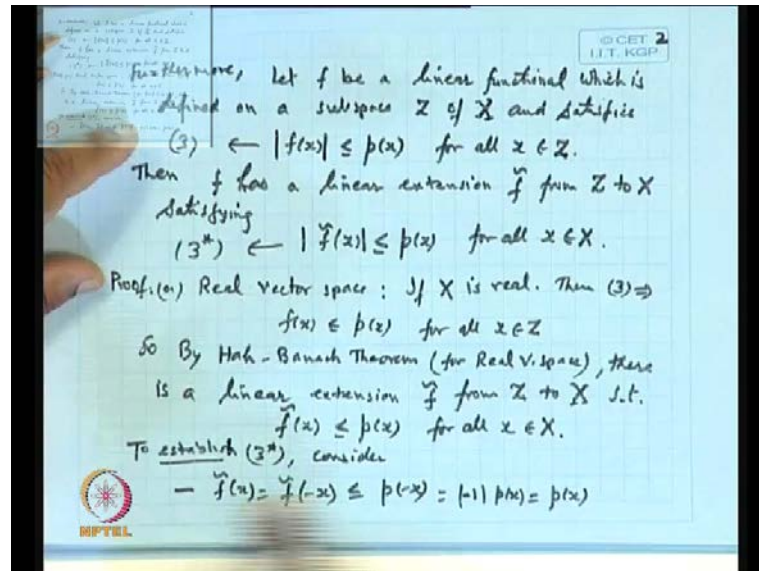 © CET 2
I.I.T. KGP
furthermore, Let f be a linear functional which is
defined on a subspace Z of X and satisfies
(3) ← |f(x)| ≤ p(x) for all x ∈ Z.
Then f has a linear extension f̃ from Z to X
satisfying
(3*) ← |f̃(x)| ≤ p(x) for all x ∈ X.
Proof: (a) Real vector space : If X is real. Then (3) ⇒
f(x) ≤ p(x) for all x ∈ Z
So By Hah-Banach Theorem (for Real V. space), there
is a linear extension f̃ from Z to X s.t.
f̃(x) ≤ p(x) for all x ∈ X.
To establish (3*), consider
- f̃(x) = f̃(-x) ≤ p(-x) = |-1| p(x) = p(x)
NPTEL